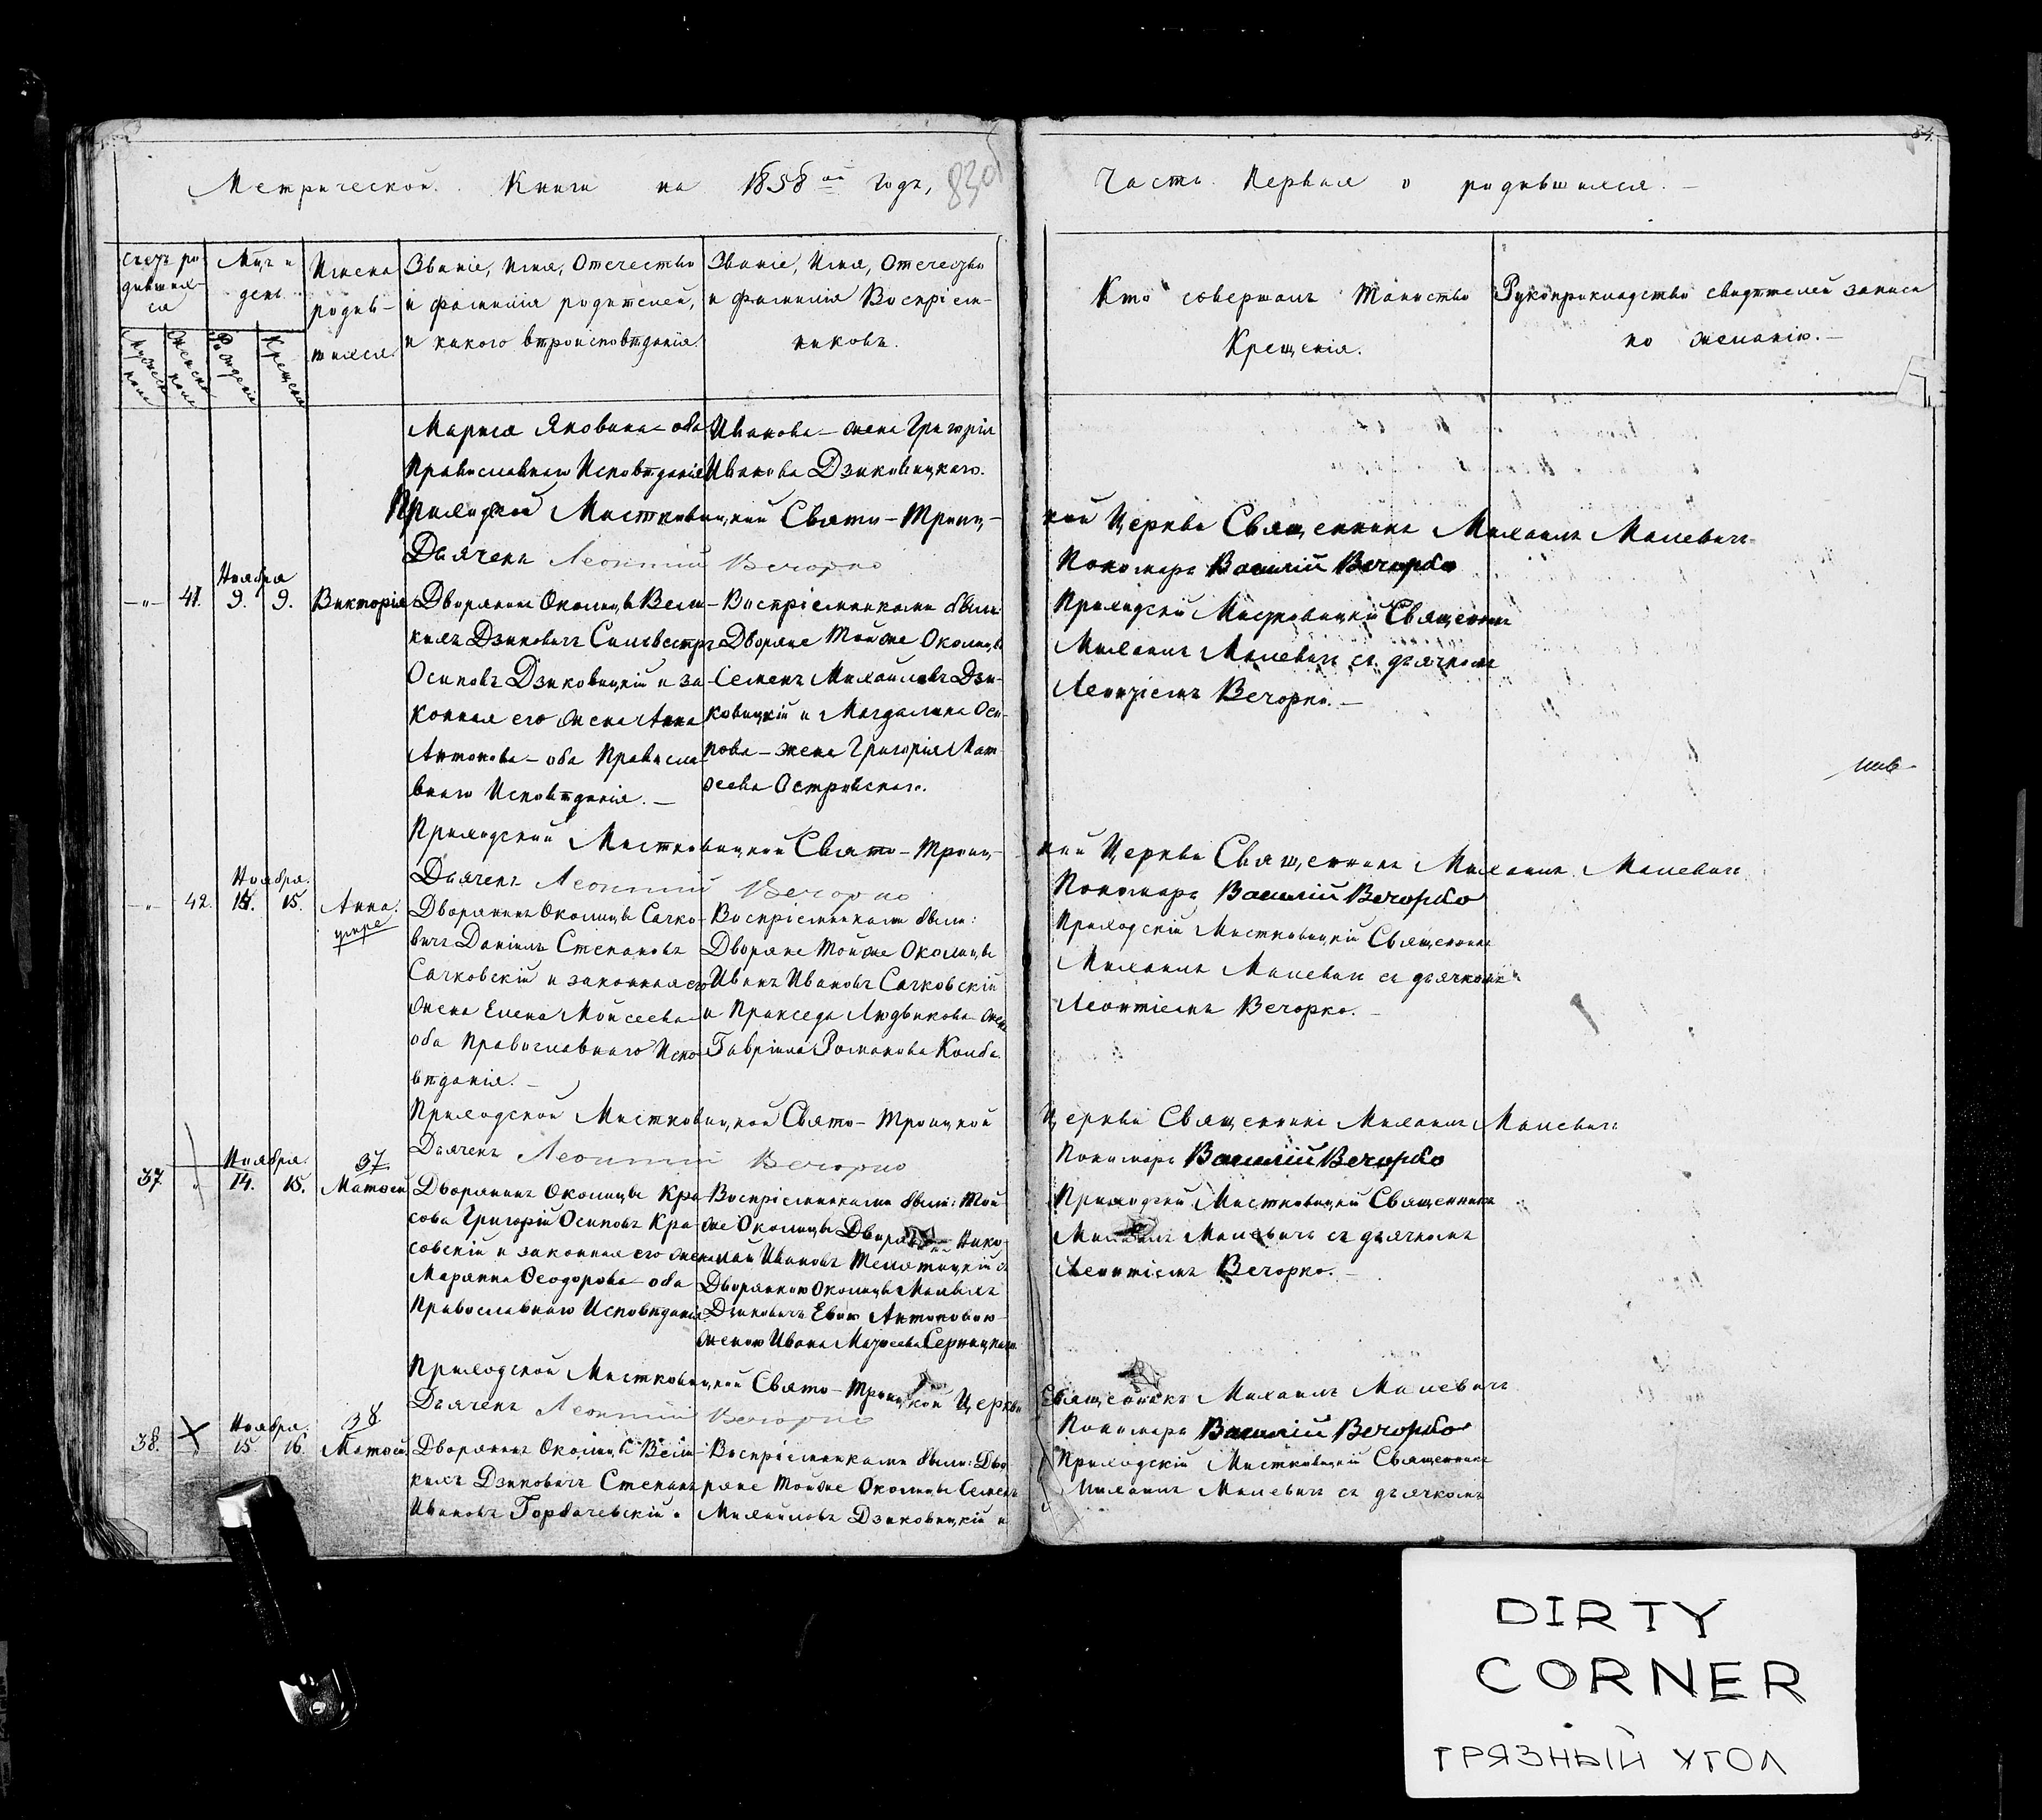 Метрической Книги на 1858ой годъ,
83об
Часть Первая о родившихся.
84.
Счетъ ро-
дивших-
ся
Мужеска
пола
Женска
пола
Мѣц и
день
Рожденiя
Крещенiя
Имена
родив-
шихся.
Званiе, Имя, Отчество
и фамилiя родителей,
и какого вѣроисповѣданiя.
Званiе, Имя, Отчество
и фамилiя Воспрiем-
никовъ.
Кто совершалъ Таинство
Крещенiя.
Рукоприкладство свидѣтелей записи
по желанiю.
Марiя Яковина - оба
Православнаго Исповѣданiя
Иванова - жена Григорiя
Иванова Дзиковицкаго.
Приходской Местковицкой Свято-Троиц-
кой Церкви Священникъ Михаилъ Малевичъ
Дьячекъ Леонтiй Вечорко
Пономарь Василiй Вечорко
41.
Ноября
9. 9.
Викторiя
Дворянинъ Околицы Вели-
кихъ Дзиковичъ Сильвестръ
Осиповъ Дзиковицкiй и за-
конная его жена Анна
Антонова - оба Правосла-
внаго Исповѣданiя. -
Воспрiемниками были
Дворяне Той же Околицы
Семенъ Михайловъ Дзи-
ковицкiй и Магдалина Оси-
пова - жена Григорiя Мат-
ѳеева Островскаго.
Приходскiй Местковицкiй Священникъ
Михаилъ Малевичъ съ дьячкомъ
Леонтiемъ Вечорко. -
Приходской Местковицкой Свято-Троиц-
кой Церкви Священникъ Михаилъ Малевичъ
Дьячекъ Леонтiй Вечорко
Пономарь Василiй Вечорко
42.
Ноября.
14. 15.
Анна.
умре
Дворянинъ Околицы Сачко-
вичъ Данiилъ Степановъ
Сачковскiй и законная его
жена Елена Мойсеева
оба Православнаго Испо-
вѣданiя. -
Воспрiемниками были:
Дворяне Той же Околицы
Иванъ Ивановъ Сачковскiй
и Пракседа Людвикова жена
Гаврiила Романова Колба.
Приходскiй Местковицкiй Священникъ
Михаилъ Малевичъ съ дьячкомъ
Леонтiемъ Вечорко. -
Приходской Местковицкой Свято-Троицкой
Церкви Священникъ Михаилъ Малевичъ
Дьячекъ Леонтiй Вечорко
Пономарь Василiй Вечорко
37
Ноября.
14. 15.
37
Матѳей
Дворянинъ Околицы Кра-
сова Григорiй Осиповъ Кра-
совскiй и законная его жена
Марянна Ѳеодорова - оба
Православнаго Исповѣданiя
Воспрiемниками были: Той
же Околицы Дворянинъ Нико-
лай Ивановъ Телятицкiй съ
Дворянкою Околицы Малыхъ
Дзиковичъ Евою Антоновою
женою Ивана Матѳеева Серницкаго.
Приходскiй Местковицкiй Священникъ
Михаилъ Малевичъ съ дьячкомъ
Леонтiемъ Вечорко. -
Приходской Местковицкой Свято-Троицкой Церкви
Священникъ Михаилъ Малевичъ
Дьячекъ Леонтiй Вечорко
Пономарь Василiй Вечорко
38.
Ноября.
15 16.
38
Матѳей
Дворянинъ Околицы Вели-
кихъ Дзиковичъ Степанъ
Ивановъ Горбачевскiй и
Воспрiемниками были: Дво-
ряне Той же Околицы Семенъ
Михайловъ Дзиковицкiй и
Приходскiй Местковицкiй Священникъ
Михаилъ Малевичъ съ дьячкомъ
DIRTY
CORNER
ГРЯЗНЫЙ УГОЛ